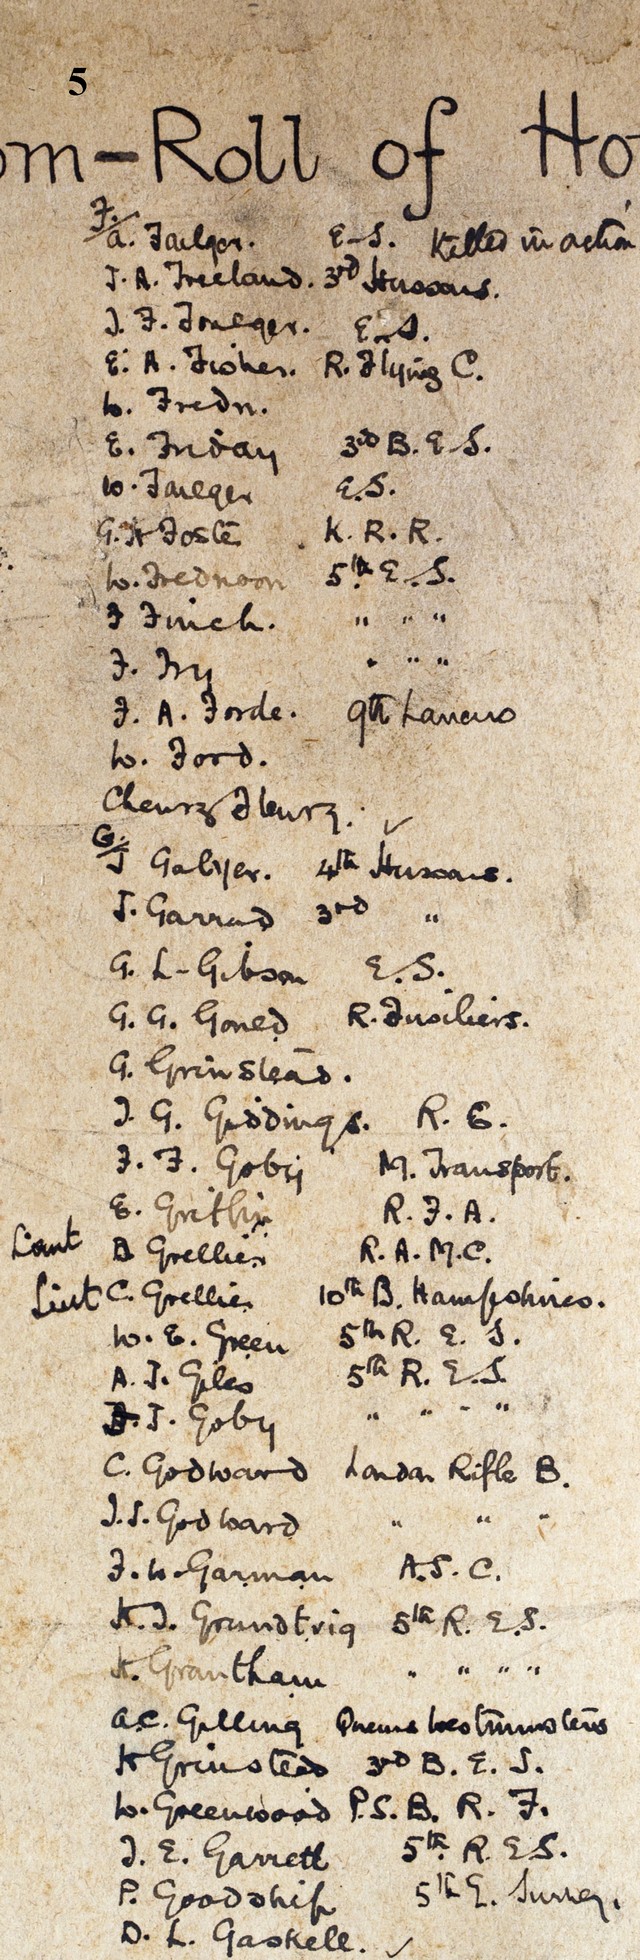 5
om-Roll of Ho
F.
A. Faulger. E-S. Killed in action
J. A. Freeland. 3rd Hussars.
J. F. E.S.
E. A. Fisher. R. Flying C.
W. Fredn.
E. Friday 3rd B. E. S.
W. E.S.
G. H Foste K. R. R.
W. 5th E. S.
F Finch. " " "
F. Fry " " "
F. A. Forde. 9th Lancers
W. Ford.
✓
G.
J Galyer. 4th Hussars.
J. Garrad 3rd "
G. L-Gibson E. S.
G. G. R. Fusiliers.
G. Grinstead.
J. G. Giddings. R. E.
F. F. Goby M. Transport.
E. Griffin R. F. A.
B Grellier R. A. M. C.
Lieut C. Grellier 10th B. Hampshires.
W. E. Green 5th R. E. S.
A. J. Giles 5th R. E. S.
J. Goby " " " "
C. Godward London Rifle B.
J. S. Godward " " "
F. W. Garman A. S. C.
5th R. E. S.
H. Grantham " " " "
A.C. Gilling Queens Westminsters
H Grinstead 3rd B. E. S.
W. Greenwood P. S. B. R. F.
J. E. Garrett 5th R. E. S.
P. Goodship 5th E. Surrey.
D. L. Gaskell. ✓